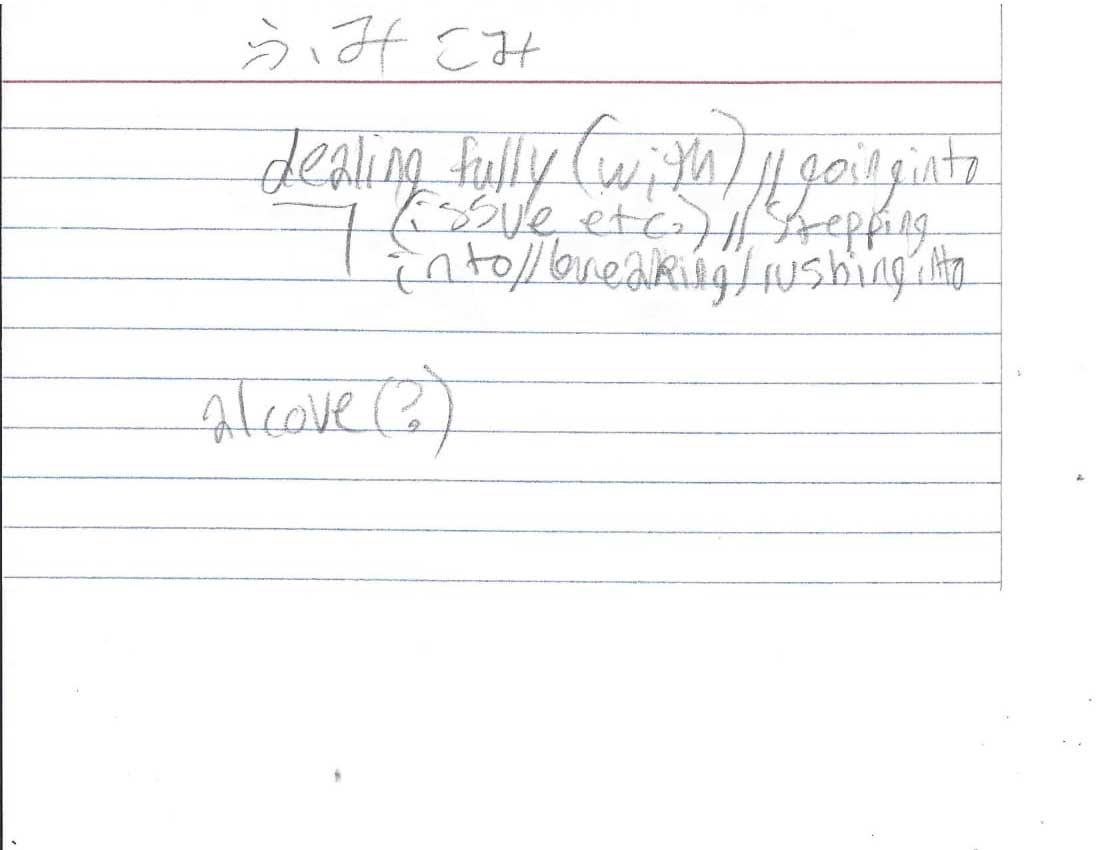 ふみこみ
dealing fully (with) // going into
(issue etc.) // stepping
into // breaking / rushing into
alcove (?)